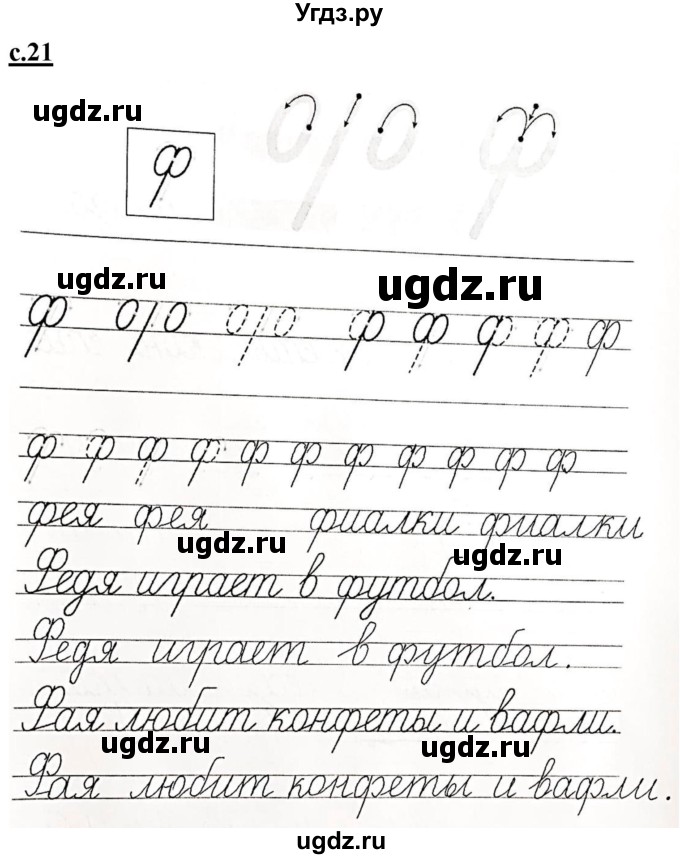 Угдз.ру
с.21
ugdz.ru
ф
ugdz.ru
ugdz.ru
ф ф ф ф ф ф
ф ф ф ф ф ф ф ф ф ф ф
фея фея фиалки фиалки
ugdz.ru
ugdz.ru
Федя играет в футбол.
Федя играет в футбол.
Фая любит конфеты и вафли.
ugdz.ru
ugdz.ru
Фая любит конфеты и вафли.
ugdz.ru